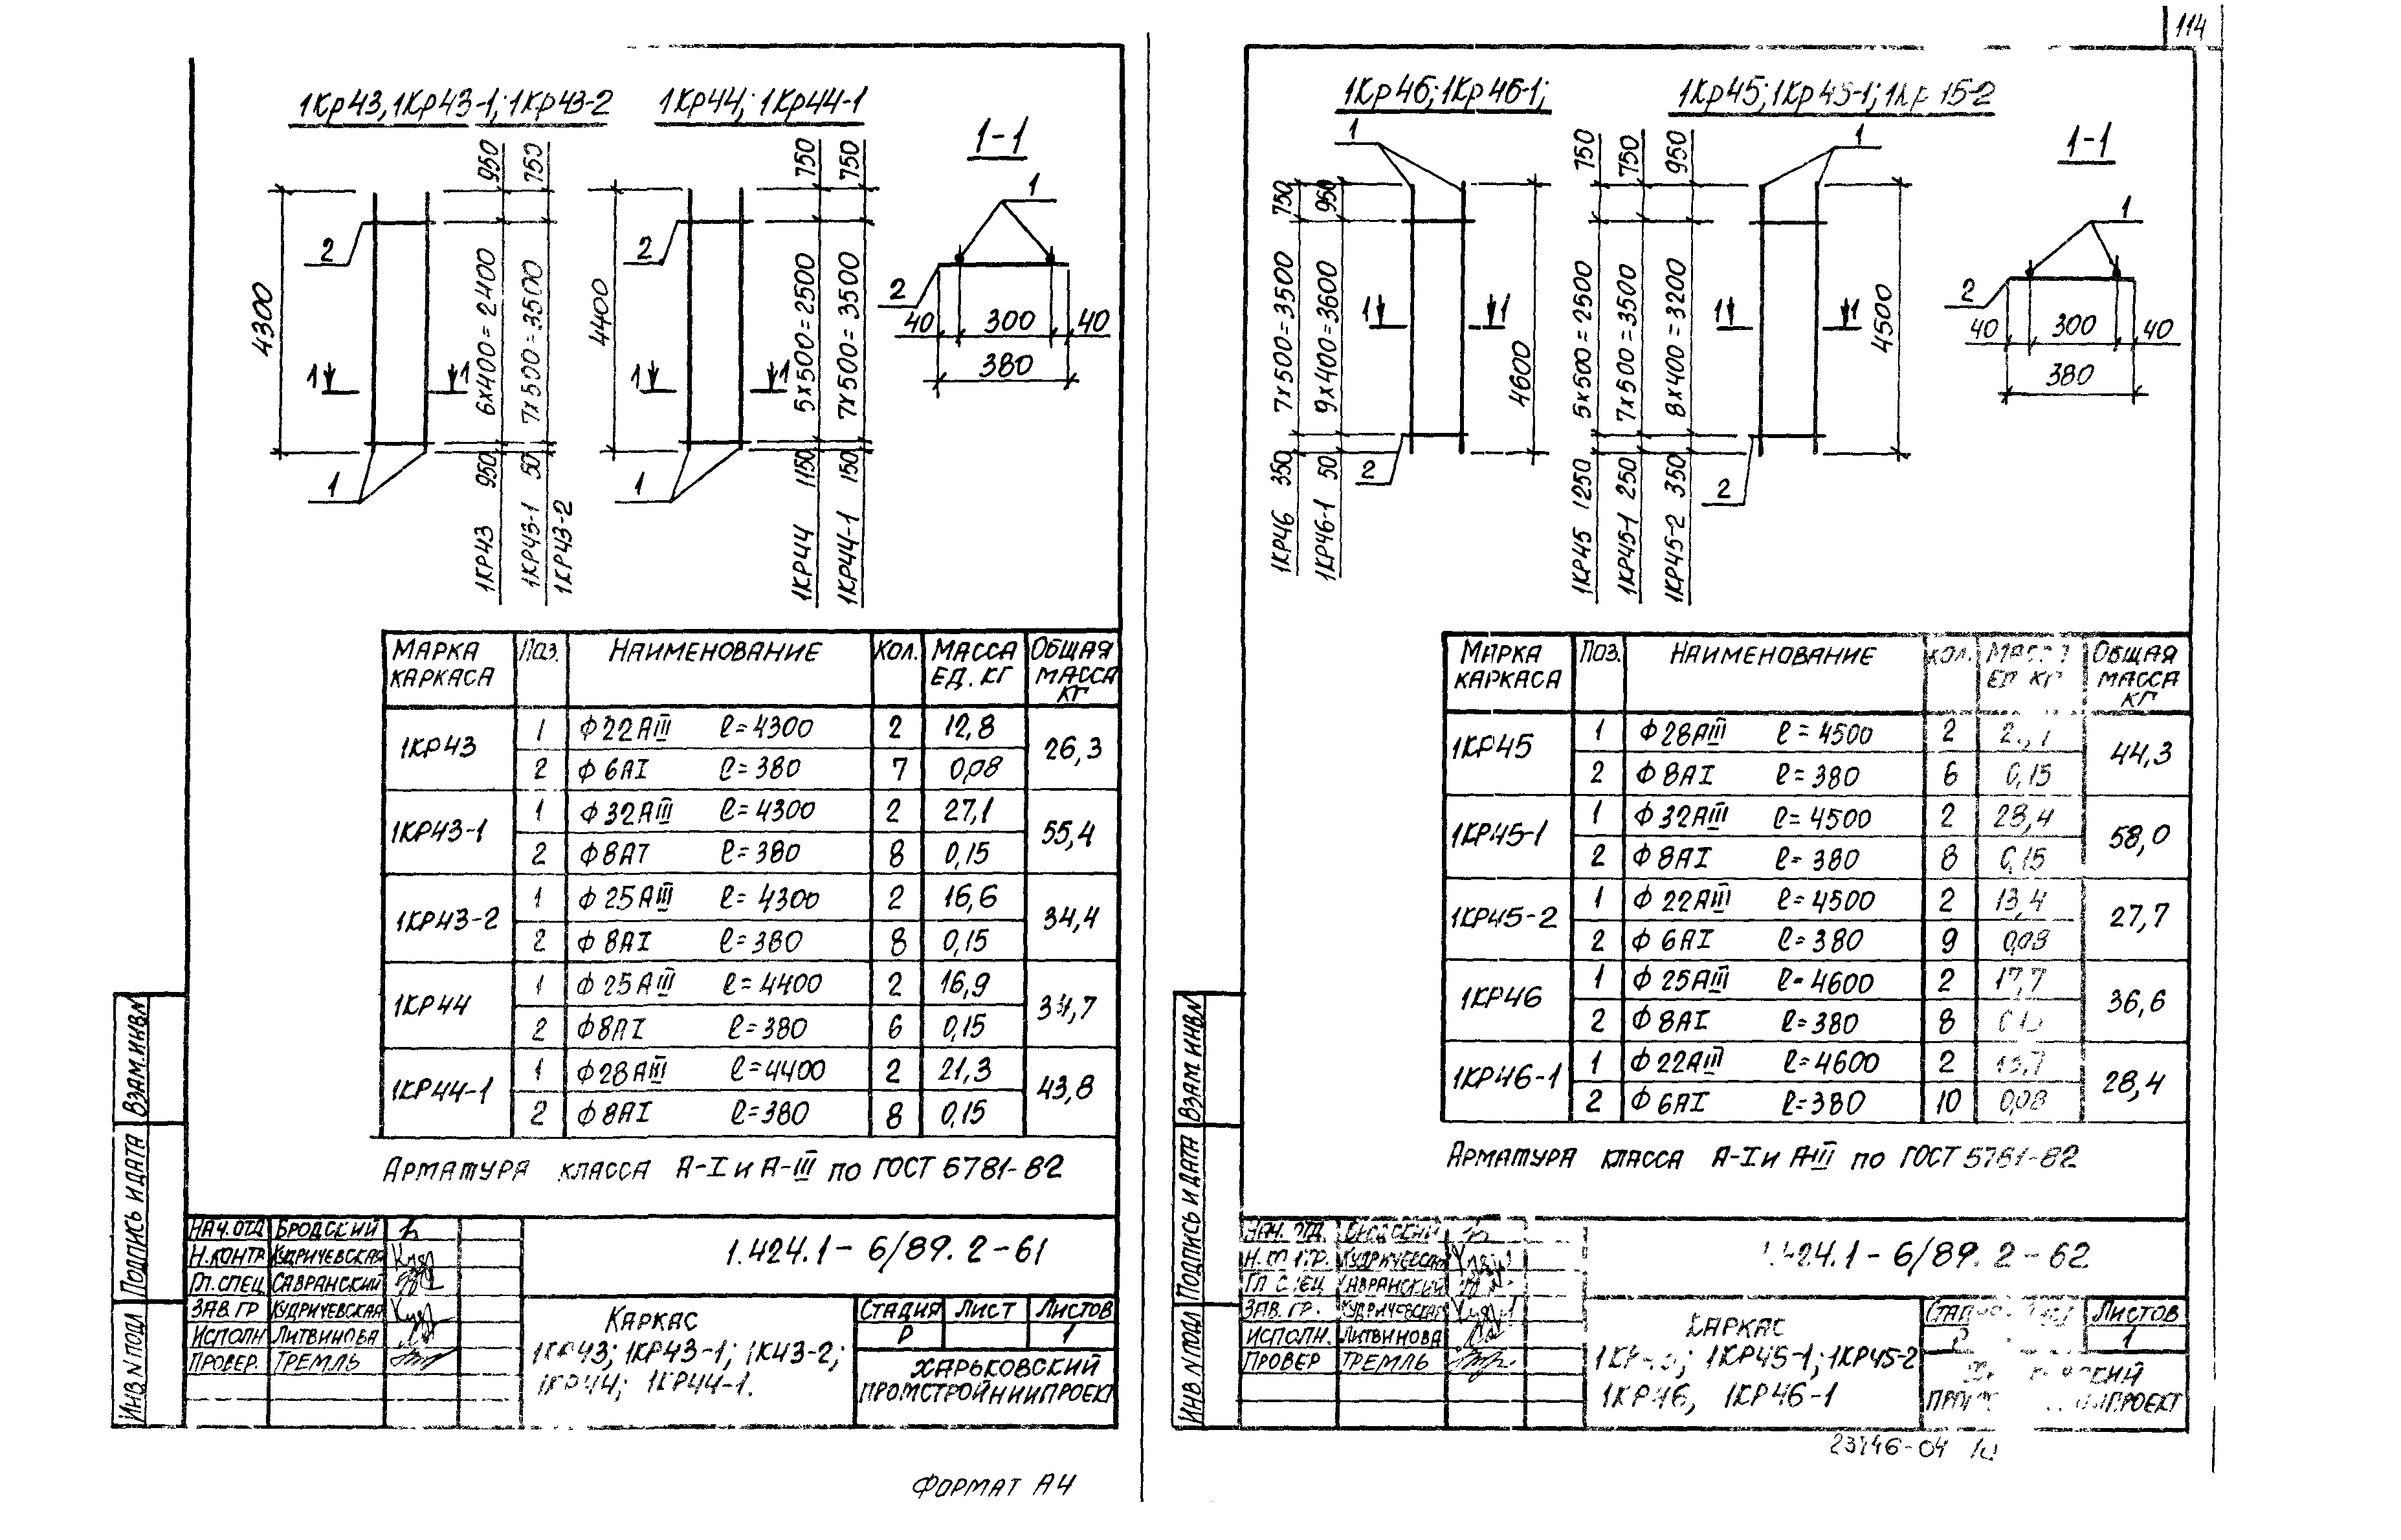 114
1Кр43, 1Кр43-1; 1Кр43-2
1Кр44; 1Кр44-1
1-1
4300
2
1
1
1
950
6х400=2400
950
1КР43
750
7х500=3500
50
1КР43-1
1КР43-2
4400
2
1
1
1
750
5х500=2500
1150
1КР44
750
7х500=3500
150
1КР44-1
1
2
40 300 40
380
МАРКА КАРКАСА Поз. НАИМЕНОВАНИЕ Кол. МАССА ЕД. КГ ОБЩАЯ МАССА КГ
1КР43 1 Ф22АIII ℓ=4300 2 12,8 26,3
2 Ф6АI ℓ=380 7 0,08
1КР43-1 1 Ф32АIII ℓ=4300 2 27,1 55,4
2 Ф8АI ℓ=380 8 0,15
1КР43-2 1 Ф25АIII ℓ=4300 2 16,6 34,4
2 Ф8АI ℓ=380 8 0,15
1КР44 1 Ф25АIII ℓ=4400 2 16,9 34,7
2 Ф8АI ℓ=380 6 0,15
1КР44-1 1 Ф28АIII ℓ=4400 2 21,3 43,8
2 Ф8АI ℓ=380 8 0,15
АРМАТУРА КЛАССА А-I и А-III по ГОСТ 5781-82
ВЗАМ.ИНВ.N
ПОДПИСЬ И ДАТА
ИНВ.N ПОДЛ
НАЧ.ОТД БРОДСКИЙ
Н.КОНТР КУДРИЧЕВСКАЯ
Гл.СПЕЦ САВРАНСКИЙ
ЗАВ.ГР КУДРИЧЕВСКАЯ
ИСПОЛН ЛИТВИНОВА
ПРОВЕР. ТРЕМЛЬ
1.424.1-6/89.2-61
КАРКАС
1КР43; 1КР43-1; 1К43-2;
1КР44; 1КР44-1.
СТАДИЯ ЛИСТ ЛИСТОВ
Р 1
ХАРЬКОВСКИЙ
ПРОМСТРОЙНИИПРОЕКТ
ФОРМАТ А4
1Кр46; 1Кр46-1;
1Кр45; 1Кр45-1;
1-1
750
7х500=3500
350
1КР46
950
9х400=3600
50
1КР46-1
1
1
1
2
4600
750
5х500=2500
1250
1КР45
750
7х500=3500
250
1КР45-1
950
8х400=3200
350
1КР45-2
1
1
1
2
4500
1
2
40 300 40
380
МАРКА КАРКАСА ПОЗ. НАИМЕНОВАНИЕ КОЛ. ОБЩАЯ МАССА КГ
1КР45 1 Ф28АIII ℓ=4500 2 44,3
2 Ф8АI ℓ=380 6 0,15
1КР45-1 1 Ф32АIII ℓ=4500 2 28,4 58,0
2 Ф8АI ℓ=380 8 0,15
1КР45-2 1 Ф22АIII ℓ=4500 2 13,4 27,7
2 Ф6АI ℓ=380 9 0,08
1КР46 1 Ф25АIII ℓ=4600 2 17,7 36,6
2 Ф8АI ℓ=380 8
1КР46-1 1 Ф22АIII ℓ=4600 2 13,7 28,4
2 Ф6АI ℓ=380 10 0,08
АРМАТУРА КЛАССА А-I и А-III по ГОСТ 5781-82
ВЗАМ ИНВ.N
ПОДПИСЬ И ДАТА
ИНВ N ПОДЛ
НАЧ. ОТД.
КУДРИЧЕВСКАЯ
ЗАВ. ГР. КУДРИЧЕВСКАЯ
ИСПОЛН. ЛИТВИНОВА
ПРОВЕР ТРЕМЛЬ
1.424.1-6/89.2-62
КАРКАС
1КР45-1; 1КР45-2
1КР46, 1КР46-1
ЛИСТОВ
1